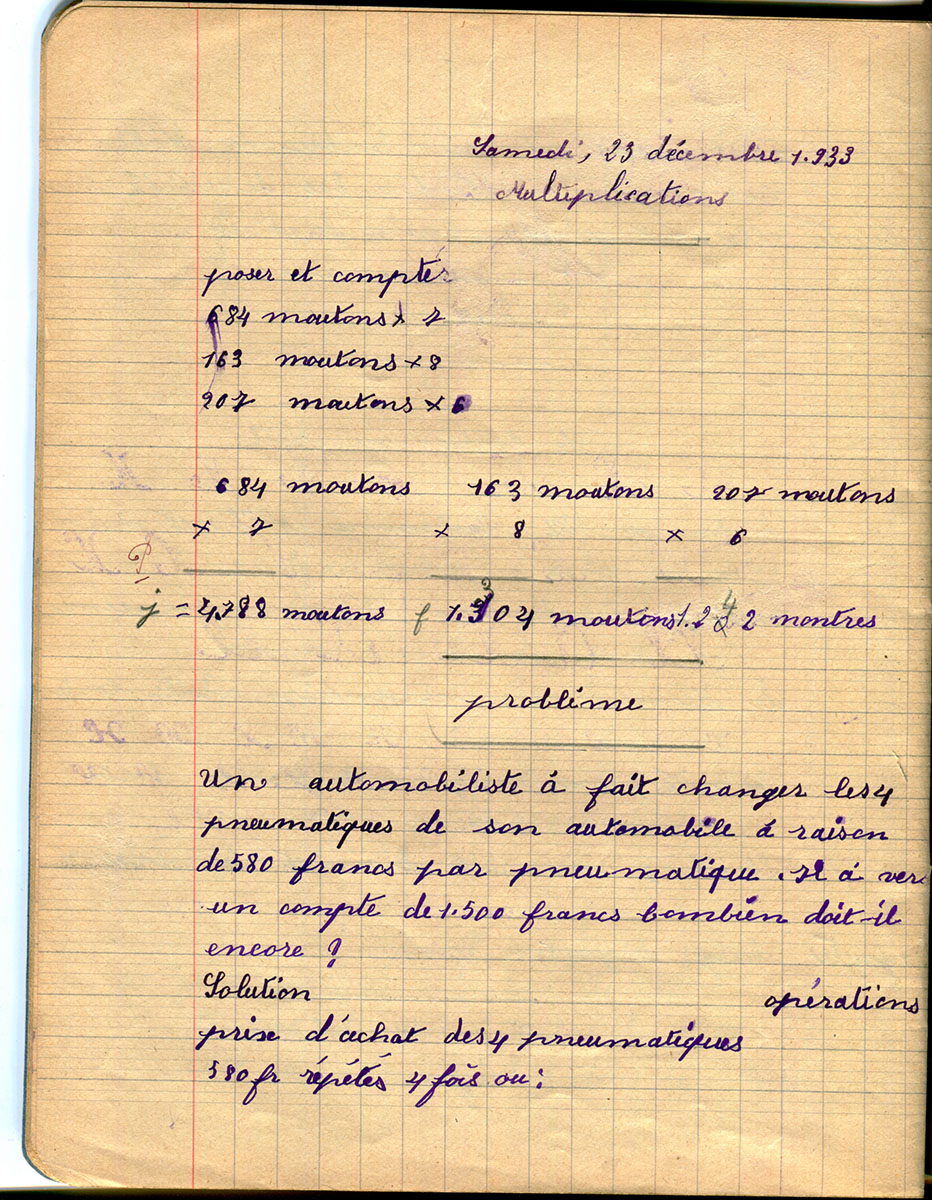 Samedi, 23 décembre 1.933
Multiplications
poser et compter
684 moutons × 7
163 moutons × 8
207 moutons × 6
684 moutons 163 moutons 207 moutons
× 7 × 8 × 6
j = 4.788 moutons f 1.304 moutons 1.242 montres
problème
Un automobiliste à fait changer les 4
pneumatiques de son automobile à raison
de 580 francs par pneumatique. Il à ver
un compte de 1.500 francs combien doit-il
encore ?
Solution opérations
prise d'achat des 4 pneumatiques
580 fr répétés 4 fois ou :